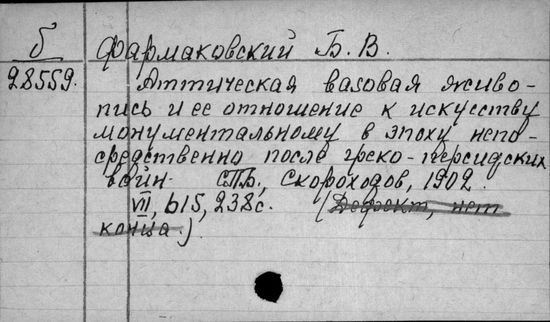 Б Фармаковский Б. В.
28559. Аттическая вазовая живо-
пись и ее отношение к искусству
монументальному в эпоху непо-
средственно после греко-персидских
войн. СПБ, Скороходов, 1902.
VII, 615, 238с. (Дефект, нет
конца.)